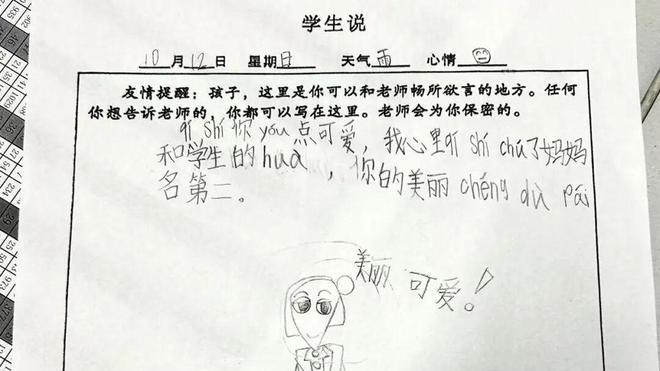 学生说
10月12日 星期日 天气雨 心情
友情提醒：孩子，这里是你可以和老师畅所欲言的地方。任何
你想告诉老师的，你都可以写在这里。老师会为你保密的。
qí shí你yǒu点可爱，我心里qí shí chú了妈妈
和学生的huà，你的美丽chéng dù pái
名第二。
美丽 可爱！